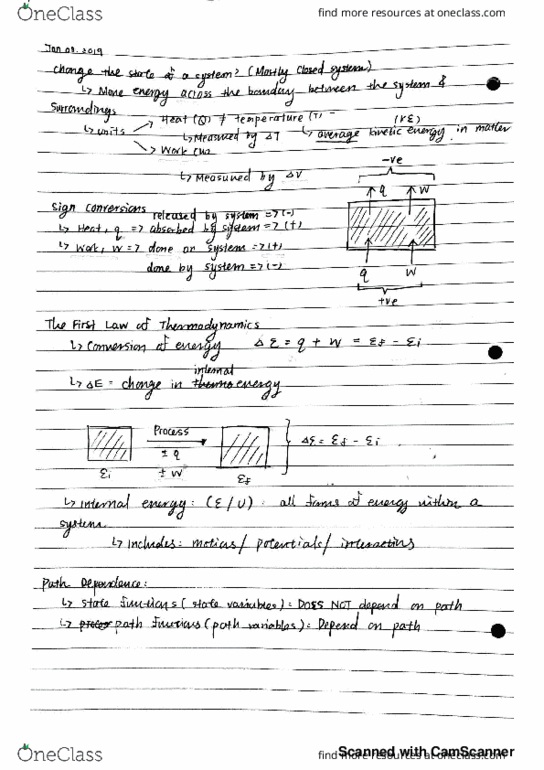 OneClass
find more resources at oneclass.com
Jan 08. 2019
change the state of a system? (Mostly closed system)
↳ Move energy across the boundary between the system &
surroundings
↳ units
Heat (Q) ≠ temperature (T)
(KE)
↳ Measured by ΔT ↳ average kinetic energy in matter
Work
↳ Measured by ΔV
-ve
q w
Sign Conversions
released by system => (-)
↳ Heat, q => absorbed by system => (+)
↳ Work, w => done on system => (+)
done by system => (-)
q w
+ve
The First Law of Thermodynamics
↳ Conversion of energy ΔE = q + w = Ef - Ei
internal
↳ ΔE = change in thermo energy
Process
± q
± w
Ei
Ef
ΔE = Ef - Ei
↳ internal energy: (E/U): all forms of energy within a
system
↳ Includes: motions/ potentials/ interactions
Path Dependence:
↳ state functions (state variables): DOES NOT depend on path
↳ path functions (path variables): Depend on path
OneClass
find more resources at oneclass.com
Scanned with CamScanner